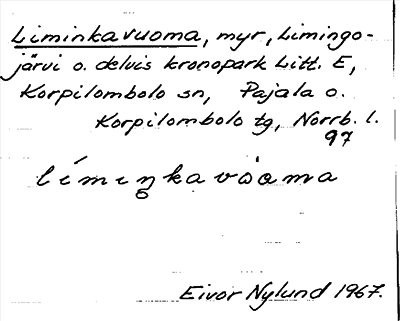 Liminkavuoma, myr, Limingo-
järvi o. delvis kronopark Litt. E,
Korpilombolo sn, Pajala o.
Korpilombolo tg, Norrb. l.
97
límiŋkavòoma
Eivor Nylund 1967.